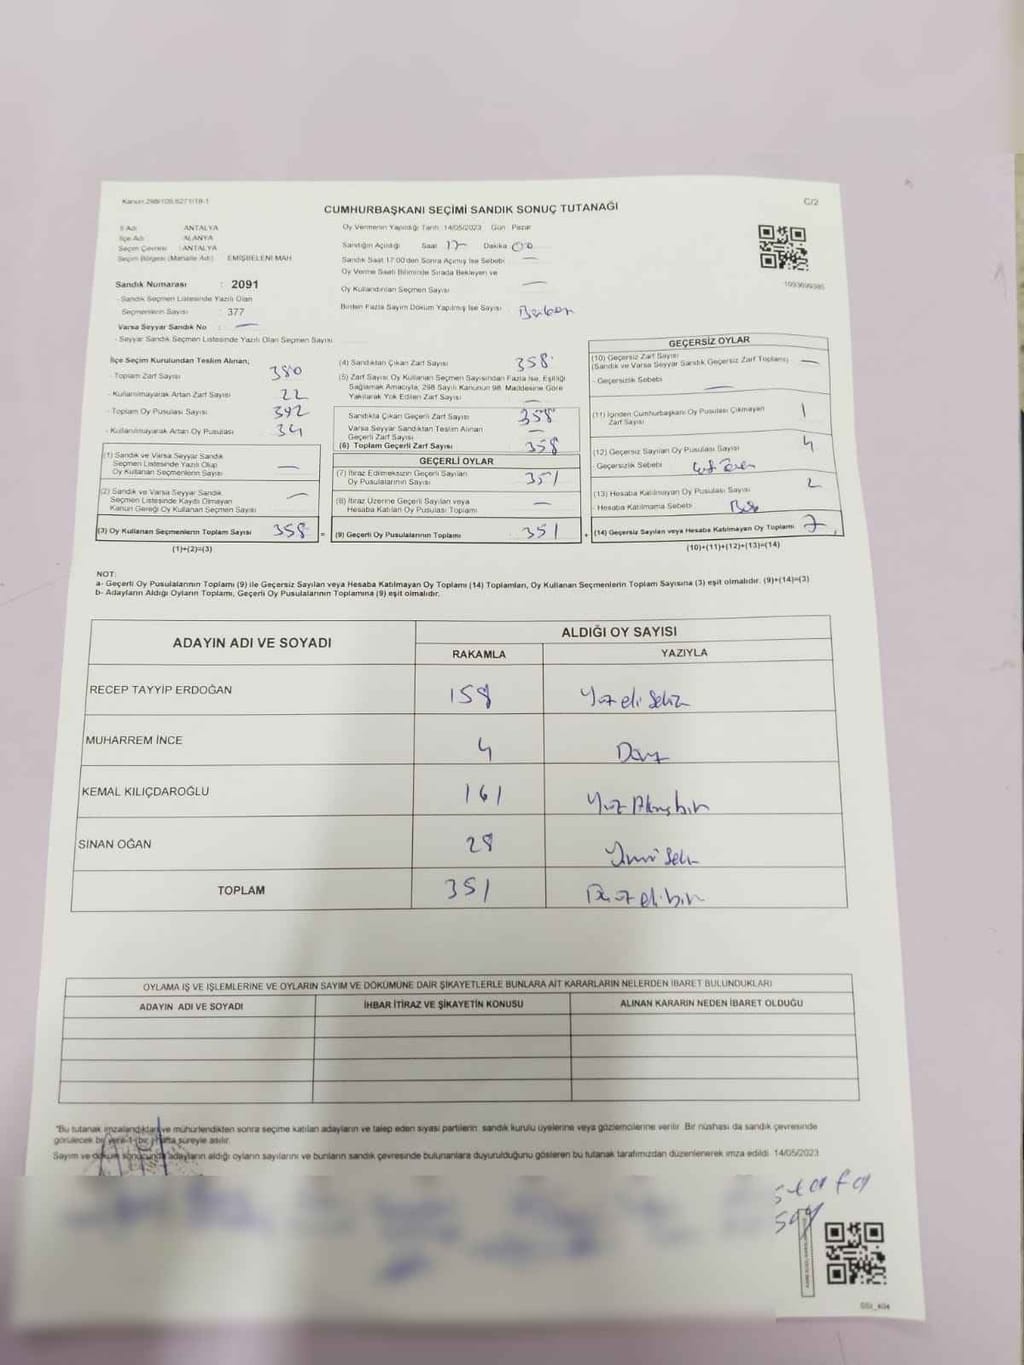 Kanun:298/105,6271/18-1
CUMHURBAŞKANI SEÇİMİ SANDIK SONUÇ TUTANAĞI
C/2
İl Adı : ANTALYA
İlçe Adı : ALANYA
Seçim Çevresi : ANTALYA
Seçim Bölgesi (Mahalle Adı) : EMİŞBELENİ MAH
Sandık Numarası : 2091
- Sandık Seçmen Listesinde Yazılı Olan
Seçmenlerin Sayısı : 377
Varsa Seyyar Sandık No : —
- Seyyar Sandık Seçmen Listesinde Yazılı Olan Seçmen Sayısı
Oy Vermenin Yapıldığı Tarih: 14/05/2023 Gün: Pazar
Sandığın Açıldığı Saat 17 Dakika 00
Sandık Saat 17:00'den Sonra Açılmış İse Sebebi —
Oy Verme Saati Bitiminde Sırada Bekleyen ve
Oy Kullandırılan Seçmen Sayısı —
Birden Fazla Sayım Döküm Yapılmış İse Sayısı
1093699385
İlçe Seçim Kurulundan Teslim Alınan;
- Toplam Zarf Sayısı 380
- Kullanılmayarak Artan Zarf Sayısı 22
- Toplam Oy Pusulası Sayısı 392
- Kullanılmayarak Artan Oy Pusulası 34
(1) Sandık ve Varsa Seyyar Sandık
Seçmen Listesinde Yazılı Olup
Oy Kullanan Seçmenlerin Sayısı —
(2) Sandık ve Varsa Seyyar Sandık
Seçmen Listesinde Kaydı Olmayan
Kanun Gereği Oy Kullanan Seçmen Sayısı —
(3) Oy Kullanan Seçmenlerin Toplam Sayısı 358 =
(1)+(2)=(3)
(4) Sandıktan Çıkan Zarf Sayısı 358
(5) Zarf Sayısı Oy Kullanan Seçmen Sayısından Fazla İse, Eşitliği
Sağlamak Amacıyla, 298 Sayılı Kanunun 98. Maddesine Göre
Yakılarak Yok Edilen Zarf Sayısı —
Sandıkta Çıkan Geçerli Zarf Sayısı 358
Varsa Seyyar Sandıktan Teslim Alınan
Geçerli Zarf Sayısı —
(6) Toplam Geçerli Zarf Sayısı 358
GEÇERLİ OYLAR
(7) İtiraz Edilmeksizin Geçerli Sayılan
Oy Pusulalarının Sayısı 351
(8) İtiraz Üzerine Geçerli Sayılan veya
Hesaba Katılan Oy Pusulası Toplamı —
(9) Geçerli Oy Pusulalarının Toplamı 351 +
GEÇERSİZ OYLAR
(10) Geçersiz Zarf Sayısı
(Sandık ve Varsa Seyyar Sandık Geçersiz Zarf Toplamı) —
- Geçersizlik Sebebi —
(11) İçinden Cumhurbaşkanı Oy Pusulası Çıkmayan
Zarf Sayısı 1
(12) Geçersiz Sayılan Oy Pusulası Sayısı 4
- Geçersizlik Sebebi
(13) Hesaba Katılmayan Oy Pusulası Sayısı 2
- Hesaba Katılmama Sebebi
(14) Geçersiz Sayılan veya Hesaba Katılmayan Oy Toplamı 7
(10)+(11)+(12)+(13)=(14)
NOT:
a- Geçerli Oy Pusulalarının Toplamı (9) ile Geçersiz Sayılan veya Hesaba Katılmayan Oy Toplamı (14) Toplamları, Oy Kullanan Seçmenlerin Toplam Sayısına (3) eşit olmalıdır. (9)+(14)=(3)
b- Adayların Aldığı Oyların Toplamı, Geçerli Oy Pusulalarının Toplamına (9) eşit olmalıdır.
ADAYIN ADI VE SOYADI
ALDIĞI OY SAYISI
RAKAMLA YAZIYLA
RECEP TAYYİP ERDOĞAN 158 Yüz elli Sekiz
MUHARREM İNCE 4 Dört
KEMAL KILIÇDAROĞLU 161 Yüz Altmış bir
SİNAN OĞAN 28 Yirmi Sekiz
TOPLAM 351 Üçyüz elli bir
OYLAMA İŞ VE İŞLEMLERİNE VE OYLARIN SAYIM VE DÖKÜMÜNE DAİR ŞİKAYETLERLE BUNLARA AİT KARARLARIN NELERDEN İBARET BULUNDUKLARI
ADAYIN ADI VE SOYADI İHBAR İTİRAZ VE ŞİKAYETİN KONUSU ALINAN KARARIN NEDEN İBARET OLDUĞU
"Bu tutanak imzalandıktan ve mühürlendikten sonra seçime katılan adayların ve talep eden siyasi partilerin sandık kurulu üyelerine veya gözlemcilerine verilir. Bir nüshası da sandık çevresinde
görülecek bir yere 1 (bir) hafta süreyle asılır.
Sayım ve döküm sonucunda adayların aldığı oyların sayılarını ve bunların sandık çevresinde bulunanlara duyurulduğunu gösteren bu tutanak tarafımızdan düzenlenerek imza edildi. 14/05/2023